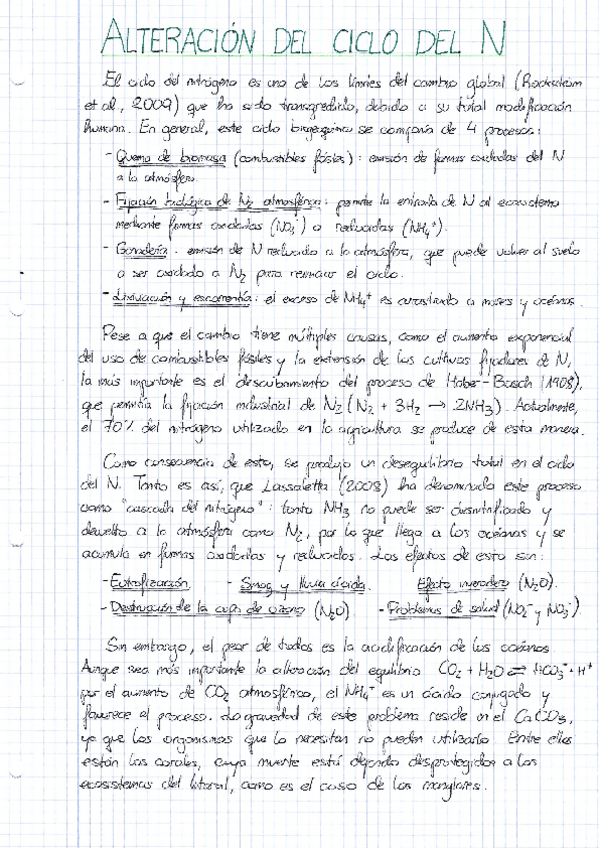 ALTERACIÓN DEL CICLO DEL N
El ciclo del nitrógeno es uno de los límites del cambio global (Rockström
et al, 2009) que ha sido transgredido, debido a su total modificación
humana. En general, este ciclo biogeoquímico se componía de 4 procesos:
- Quema de biomasa (combustibles fósiles): emisión de formas oxidadas del N
a la atmósfera.
- Fijación biológica de N₂ atmosférico: permite la entrada de N al ecosistema
mediante formas oxidadas (NO₃⁻) o reducidas (NH₄⁺).
- Ganadería: emisión de N reducido a la atmósfera, que puede volver al suelo
o ser oxidado a N₂ para reiniciar el ciclo.
- Lixiviación y escorrentía: el exceso de NH₄⁺ es arrastrado a mares y océanos.
Pese a que el cambio tiene múltiples causas, como el aumento exponencial
del uso de combustibles fósiles y la extensión de los cultivos fijadores de N,
la más importante es el descubrimiento del proceso de Haber-Bosch (1908),
que permitía la fijación industrial de N₂ (N₂ + 3H₂ → 2NH₃). Actualmente,
el 70% del nitrógeno utilizado en la agricultura se produce de esta manera.
Como consecuencia de esto, se produjo un desequilibrio total en el ciclo
del N. Tanto es así, que Lassaletta (2008) ha denominado este proceso
como "cascada del nitrógeno": tanto NH₃ no puede ser desnitrificado y
devuelto a la atmósfera como N₂, por lo que llega a los océanos y se
acumula en formas oxidadas y reducidas. Los efectos de esto son:
- Eutrofización - Smog y lluvia ácida. Efecto invernadero (N₂O).
- Destrucción de la capa de ozono (N₂O) - Problemas de salud (NO₂⁻ y NO₃⁻)
Sin embargo, el peor de todos es la acidificación de los océanos.
Aunque sea más importante la alteración del equilibrio CO₂ + H₂O ⇌ HCO₃⁻ + H⁺
por el aumento de CO₂ atmosférico, el NH₄⁺ es un ácido conjugado y
favorece el proceso. La gravedad de este problema reside en el CaCO₃,
ya que los organismos que lo necesitan no pueden utilizarlo. Entre ellos
están los corales, cuya muerte está dejando desprotegidos a los
ecosistemas del litoral, como es el caso de los manglares.